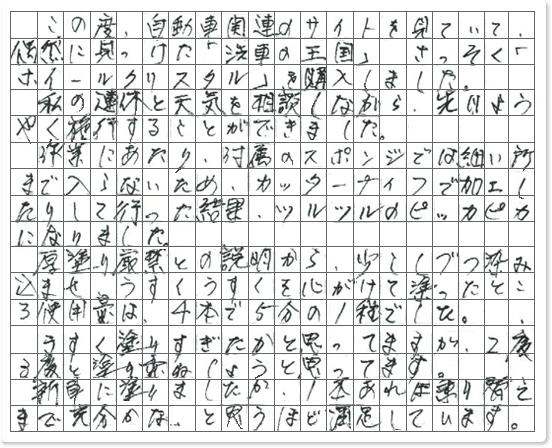 この度、自動車関連のサイトを見ていて、
偶然に見つけた「洗車の王国」 さっそく「
ホイールクリスタル」を購入しました。
私の連休と天気を相談しながら、先日よう
やく施行することができました。
作業にあたり、付属のスポンジでは細い所
まで入らないため、カッターナイフで加工し
たりして行った結果、ツルツルのピッカピカ
になりました。
厚塗り厳禁との説明から、少しづつ染み
込ませ、うすくうすくを心がけて塗ったとこ
ろ使用量は、4本で5分の1程でした。
うすく塗りすぎたかと思ってますが、2度
3度と塗り重ねしようと思ってます。
新車に塗りましたが、1本あれば乗り替え
まで充分かな、と思うほど満足しています。